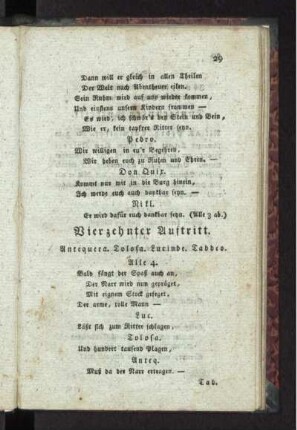 29
Dann will er gleich in allen Theilen
Der Welt nach Abentheuer eilen,
Sein Ruhm wird auf uns wieder kommen,
Und einstens unsern Kindern frommen —
Es wird, ich schwör's bey Stein und Bein,
Wie er, kein tapfrer Ritter seyn.
Pedro.
Wir willigen in eu'r Begehren,
Wir heben euch zu Ruhm und Ehren. —
Don Quix.
Kommt nur mit in die Burg hinein,
Ich werde euch auch dankbar seyn. —
Nikl.
Er wird dafür euch dankbar seyn. (Alle 3 ab.)
Vierzehnter Auftritt.
Antequera. Tolosa. Lucinde. Taddeo.
Alle 4.
Bald fängt der Spaß auch an,
Der Narr wird nun geprüget,
Mit eignem Stock gefeget,
Der arme, tolle Mann —
Luc.
Läßt sich zum Ritter schlagen,
Tolosa.
Und hundert tausend Plagen,
Anteq.
Muß da der Narr ertragen. —
Tad.